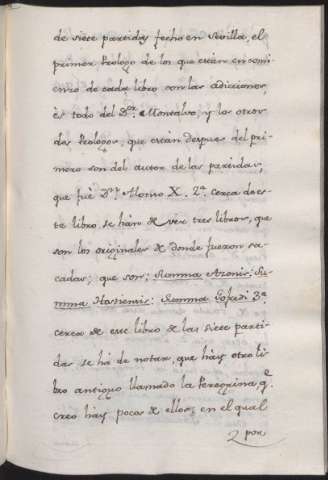 de siete partidas fecho en Sevilla, el
primer Prologo de los que están en comi-
enzo de cada libro con las addiciones
ès todo del D.or Montalvo, y los otros
dos Prologos, que están despues del pri-
mero son del autor de las partidas,
que fuè D.n Alonso X. 2.a cerca de es-
te libro se hán de vér tres libros, que
son los originales de donde fueron sa-
cadas; que son; Summa Azonis: Su-
mma Hostiensis: Summa Gofredi 3.a
cerca de este libro de las siete parti-
das se há de notar, que háy otro li-
bro antiguo llamado la Peregrina, q.e
creo háy pocos de ellos, en el qual
por